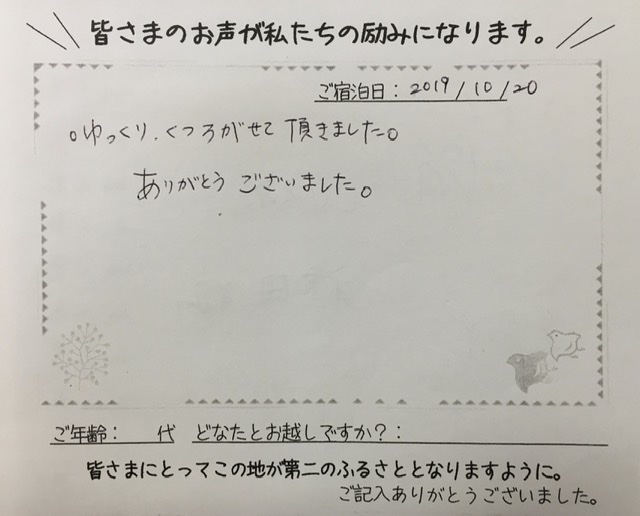 皆さまのお声が私たちの励みになります。
ご宿泊日：2019/10/20
○ゆっくり、くつろがせて頂きました。
ありがとうございました。
ご年齢：　代　どなたとお越しですか？：
皆さまにとってこの地が第二のふるさととなりますように。
ご記入ありがとうございました。